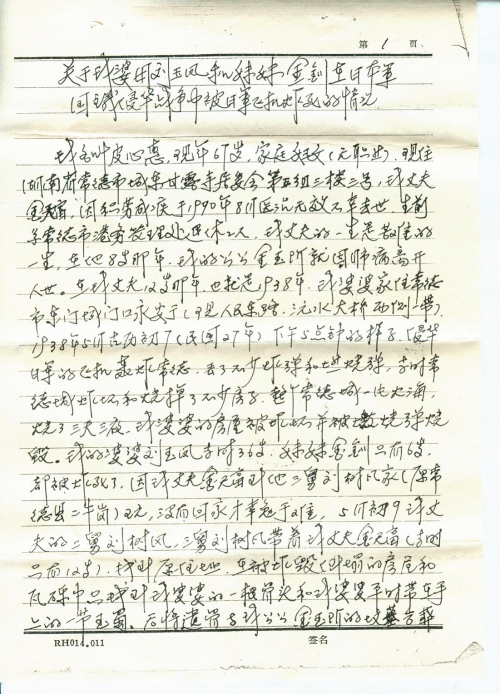 第 1 页
关于我婆母刘玉凤和妹妹金钏在日本军
国主义侵华战争中被日军飞机炸死的情况
我名叫皮心惠,现年67岁,家庭妇女(无职业),现住
湖南省常德市城东甘露寺居委会第五组二楼三号,我丈夫
金天禧,因积劳成疾于1990年8月医治无效不幸去世,生前
系常德市港务处退休工人,我丈夫的一生是艰难的
一生,在他8岁那年,我的公公金玉所就因师病离开
人世。在我丈夫12岁那年,也就是1938年,我婆婆家住常德
市东门城门口永安于(现人民东路,沅水大桥西侧一带),
1938年5月古历初7(民国27年)下午5点钟的样子,侵华
日军的飞机轰炸常德,丢了不少炸弹和燃烧弹,当时常
德城炸坏和烧掉了不少房子,整个常德城一片火海,
烧了三天三夜,我婆婆的房屋被炸坏并被燃烧弹烧
毁。我的婆婆刘玉凤当时36岁,妹妹金钏只有6岁,
都被炸死了,因我丈夫金天禧在他三舅刘树凤家(原常
德县二牛岗)玩,没有回家才幸免于难,5月初9我丈
夫的二舅刘树凤,三舅刘树凤带着我丈夫金天禧(当时
只有12岁),找到原住地,在被炸毁倒塌的房屋和
瓦砾中只找到我婆婆的一根骨头和我婆婆平时带在手
上的一苹玉蜀。后将遗骨与我公公金玉所的坟墓合葬
RH014.011 签名